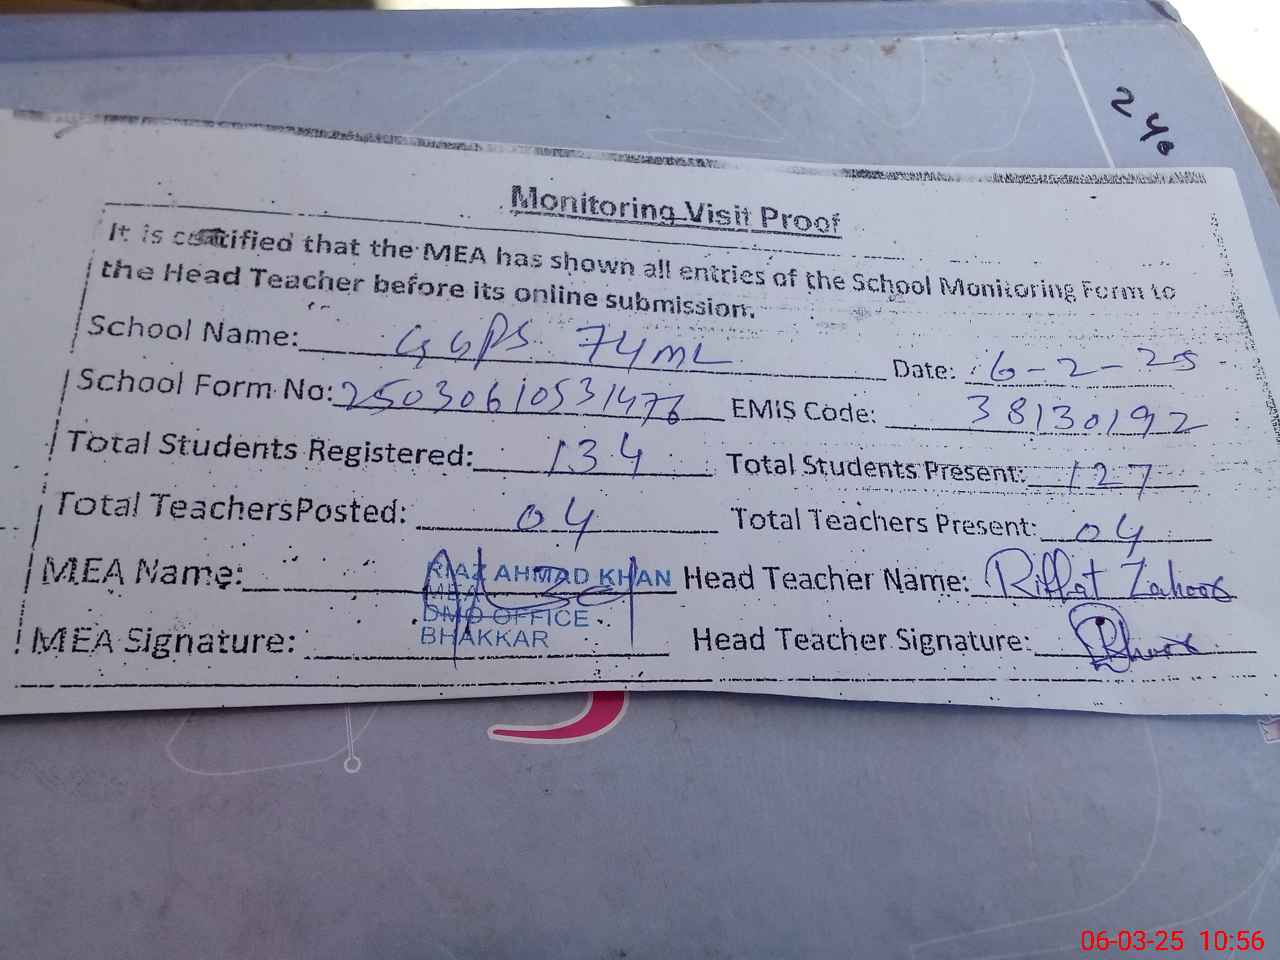 24.
Monitoring Visit Proof
It is certified that the MEA has shown all entries of the School Monitoring Form to
the Head Teacher before its online submission.
School Name: GGPS 74ML Date: 6-2-25
School Form No: 25030610531476 EMIS Code: 38130192
Total Students Registered: 134 Total Students Present: 127
Total TeachersPosted: 04 Total Teachers Present: 04
MEA Name: RIAZ AHMAD KHAN Head Teacher Name: Riffat Zahoor
MEA
DMO OFFICE
MEA Signature: BHAKKAR Head Teacher Signature:
06-03-25 10:56